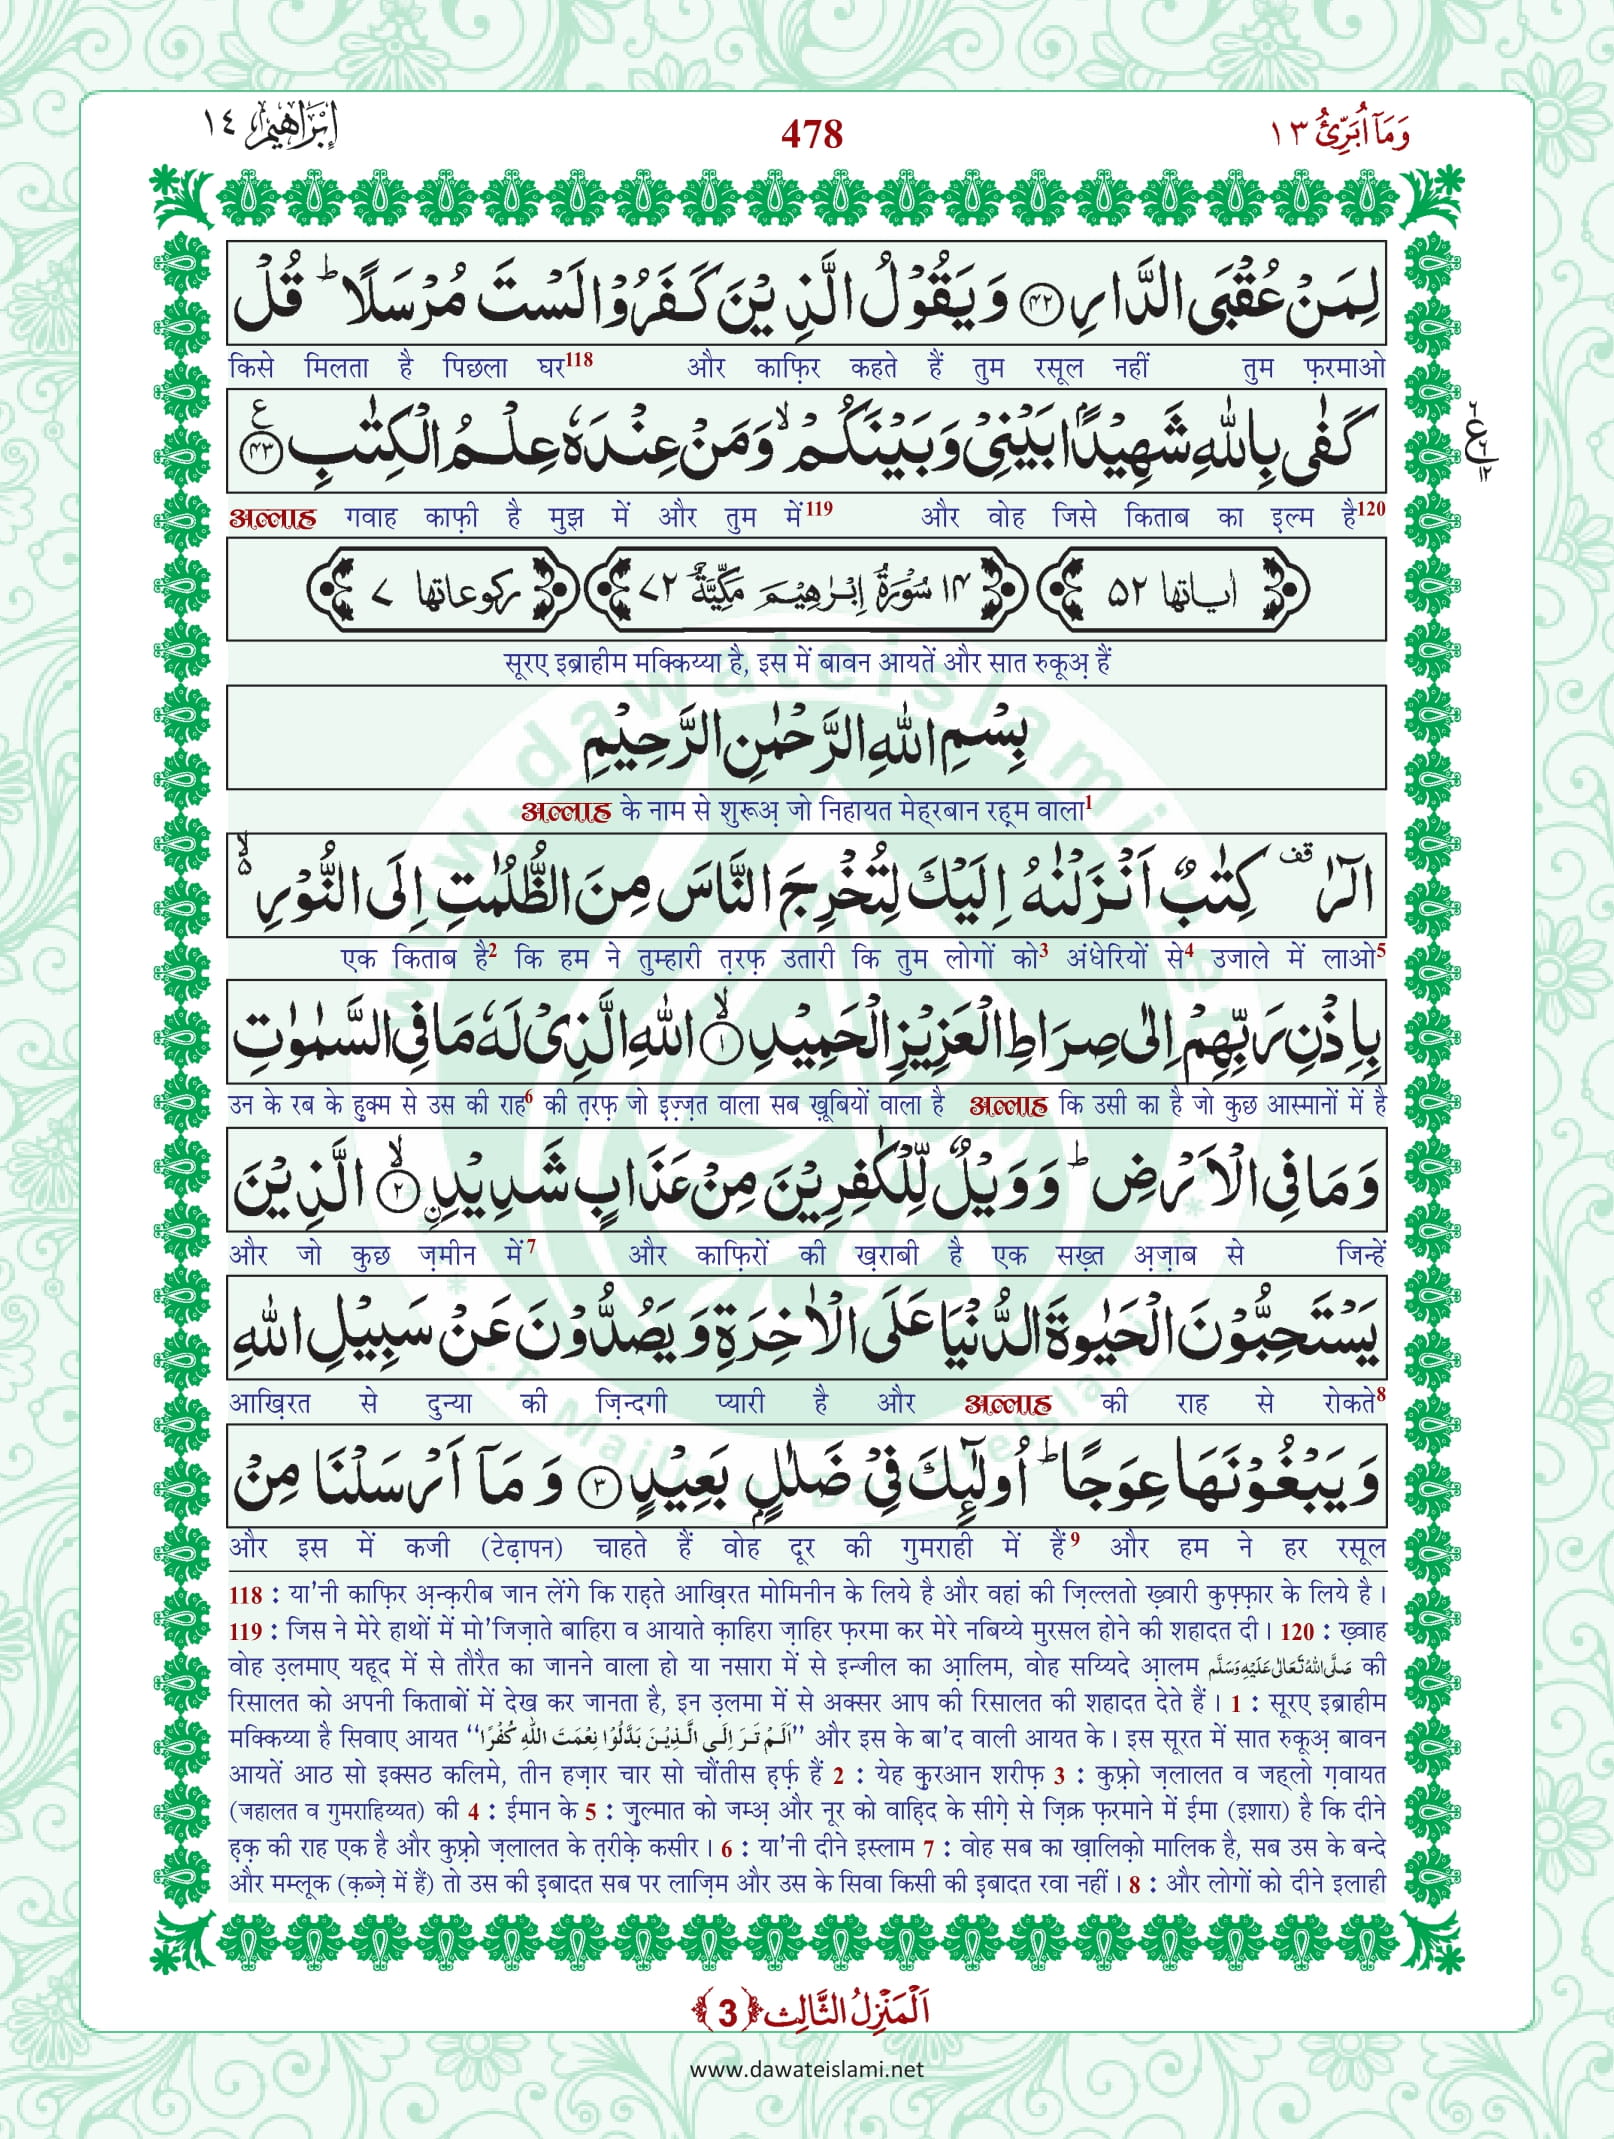 اِبْرٰهِيْم ١٤
478
وَمَاۤ اُبَرِّئُ ١٣
لِمَنْ عُقْبَى الدَّارِ ﴿۴۲﴾ وَ يَقُوْلُ الَّذِيْنَ كَفَرُوْا لَسْتَ مُرْسَلًا ؕ قُلْ
किसे मिलता है पिछला घर118 और काफ़िर कहते हैं तुम रसूल नहीं तुम फ़रमाओ
كَفٰى بِاللّٰهِ شَهِيْدًۢا بَيْنِيْ وَ بَيْنَكُمْ ۙ وَ مَنْ عِنْدَهٗ عِلْمُ الْكِتٰبِ ﴿۴۳﴾ ع
अल्लाह गवाह काफ़ी है मुझ में और तुम में119 और वोह जिसे किताब का इल्म है120
اٰیاتها ۵۲ ۱۴ سُوْرَةُ اِبْرٰهِيْمَ مَكِّيَّةٌ ۷۲ رکوعاتها ۷
सूरए इब्राहीम मक्किय्या है, इस में बावन आयतें और सात रुकूअ़ हैं
بِسْمِ اللّٰهِ الرَّحْمٰنِ الرَّحِيْمِ
अल्लाह के नाम से शुरूअ़ जो निहायत मेह्‌रबान रह़्म वाला1
الٓرٰ ۫ قف كِتٰبٌ اَنْزَلْنٰهُ اِلَيْكَ لِتُخْرِجَ النَّاسَ مِنَ الظُّلُمٰتِ اِلَى النُّوْرِ ۙ۵
एक किताब है2 कि हम ने तुम्हारी त़रफ़ उतारी कि तुम लोगों को3 अंधेरियों से4 उजाले में लाओ5
بِاِذْنِ رَبِّهِمْ اِلٰى صِرَاطِ الْعَزِيْزِ الْحَمِيْدِ ۙ﴿۱﴾ اللّٰهِ الَّذِيْ لَهٗ مَا فِي السَّمٰوٰتِ
उन के रब के हुक्म से उस की राह6 की त़रफ़ जो इ़ज़्ज़त वाला सब ख़ूबियों वाला है अल्लाह कि उसी का है जो कुछ आस्मानों में है
وَ مَا فِي الْاَرْضِ ؕ وَ وَيْلٌ لِّلْكٰفِرِيْنَ مِنْ عَذَابٍ شَدِيْدِ ۙ﴿۲﴾ ن الَّذِيْنَ
और जो कुछ ज़मीन में7 और काफ़िरों की ख़राबी है एक सख़्त अ़ज़ाब से जिन्हें
يَسْتَحِبُّوْنَ الْحَيٰوةَ الدُّنْيَا عَلَى الْاٰخِرَةِ وَ يَصُدُّوْنَ عَنْ سَبِيْلِ اللّٰهِ
आख़िरत से दुन्या की ज़िन्दगी प्यारी है और अल्लाह की राह से रोकते8
وَ يَبْغُوْنَهَا عِوَجًا ؕ اُولٰٓئِكَ فِيْ ضَلٰلٍۭ بَعِيْدٍ ﴿۳﴾ وَ مَاۤ اَرْسَلْنَا مِنْ
और इस में कजी (टेढ़ापन) चाहते हैं वोह दूर की गुमराही में हैं9 और हम ने हर रसूल
118 : या'नी काफ़िर अ़न्क़रीब जान लेंगे कि राह़ते आख़िरत मोमिनीन के लिये है और वहां की ज़िल्लतो ख़्वारी कुफ़्फ़ार के लिये है।
119 : जिस ने मेरे हाथों में मो'जिज़ाते बाहिरा व आयाते क़ाहिरा ज़ाहिर फ़रमा कर मेरे नबिय्ये मुरसल होने की शहादत दी। 120 : ख़्वाह
वोह उ़लमाए यहूद में से तौरैत का जानने वाला हो या नसारा में से इन्जील का आ़लिम, वोह सय्यिदे आ़लम صَلَّى اللهُ تَعَالٰى عَلَيْهِ وَسَلَّم की
रिसालत को अपनी किताबों में देख कर जानता है, इन उ़लमा में से अक्सर आप की रिसालत की शहादत देते हैं। 1 : सूरए इब्राहीम
मक्किय्या है सिवाए आयत “اَلَمْ تَرَ اِلَى الَّذِيْنَ بَدَّلُوْا نِعْمَتَ اللهِ كُفْرًا” और इस के बा'द वाली आयत के। इस सूरत में सात रुकूअ़ बावन
आयतें आठ सो इक्सठ कलिमे, तीन हज़ार चार सो चौंतीस ह़र्फ़ हैं 2 : येह क़ुरआन शरीफ़ 3 : कुफ़्रो ज़लालत व जह्लो ग़वायत
(जहालत व गुमराहिय्यत) की 4 : ईमान के 5 : ज़ुल्मात को जम्अ़ और नूर को वाह़िद के सीगे़ से ज़िक्र फ़रमाने में ईमा (इशारा) है कि दीने
ह़क़ की राह एक है और कुफ़्रो ज़लालत के त़रीक़े कसीर। 6 : या'नी दीने इस्लाम 7 : वोह सब का ख़ालिक़ो मालिक है, सब उस के बन्दे
और मम्लूक (क़ब्ज़े में हैं) तो उस की इ़बादत सब पर लाज़िम और उस के सिवा किसी की इ़बादत रवा नहीं। 8 : और लोगों को दीने इलाही
اَلْمَنْزِلُ الثَّالِث ﴿3﴾
www.dawateislami.net